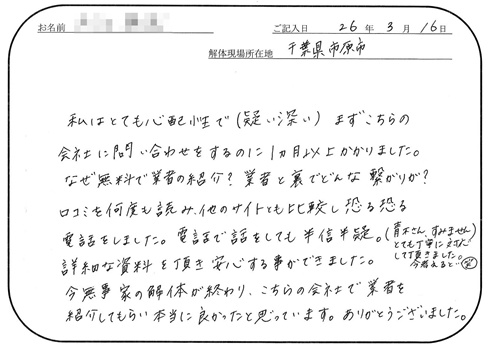 お名前 ご記入日 26年 3月 16日
解体現場所在地 千葉県市原市
私はとても心配性で(疑い深い)まずこちらの
会社に問い合わせをするのに1ヵ月以上かかりました。
なぜ無料で業者の紹介?業者と裏でどんな繋がりが?
口コミを何度も読み、他のサイトとも比較し恐る恐る
電話をしました。電話で話をしても半信半疑。(青木さん、すみません)
とても丁寧に対応
して頂きました。
今考えると…笑
詳細な資料を頂き安心する事ができました。
今無事家の解体が終わり、こちらの会社で業者を
紹介してもらい本当に良かったと思っています。ありがとうございました。